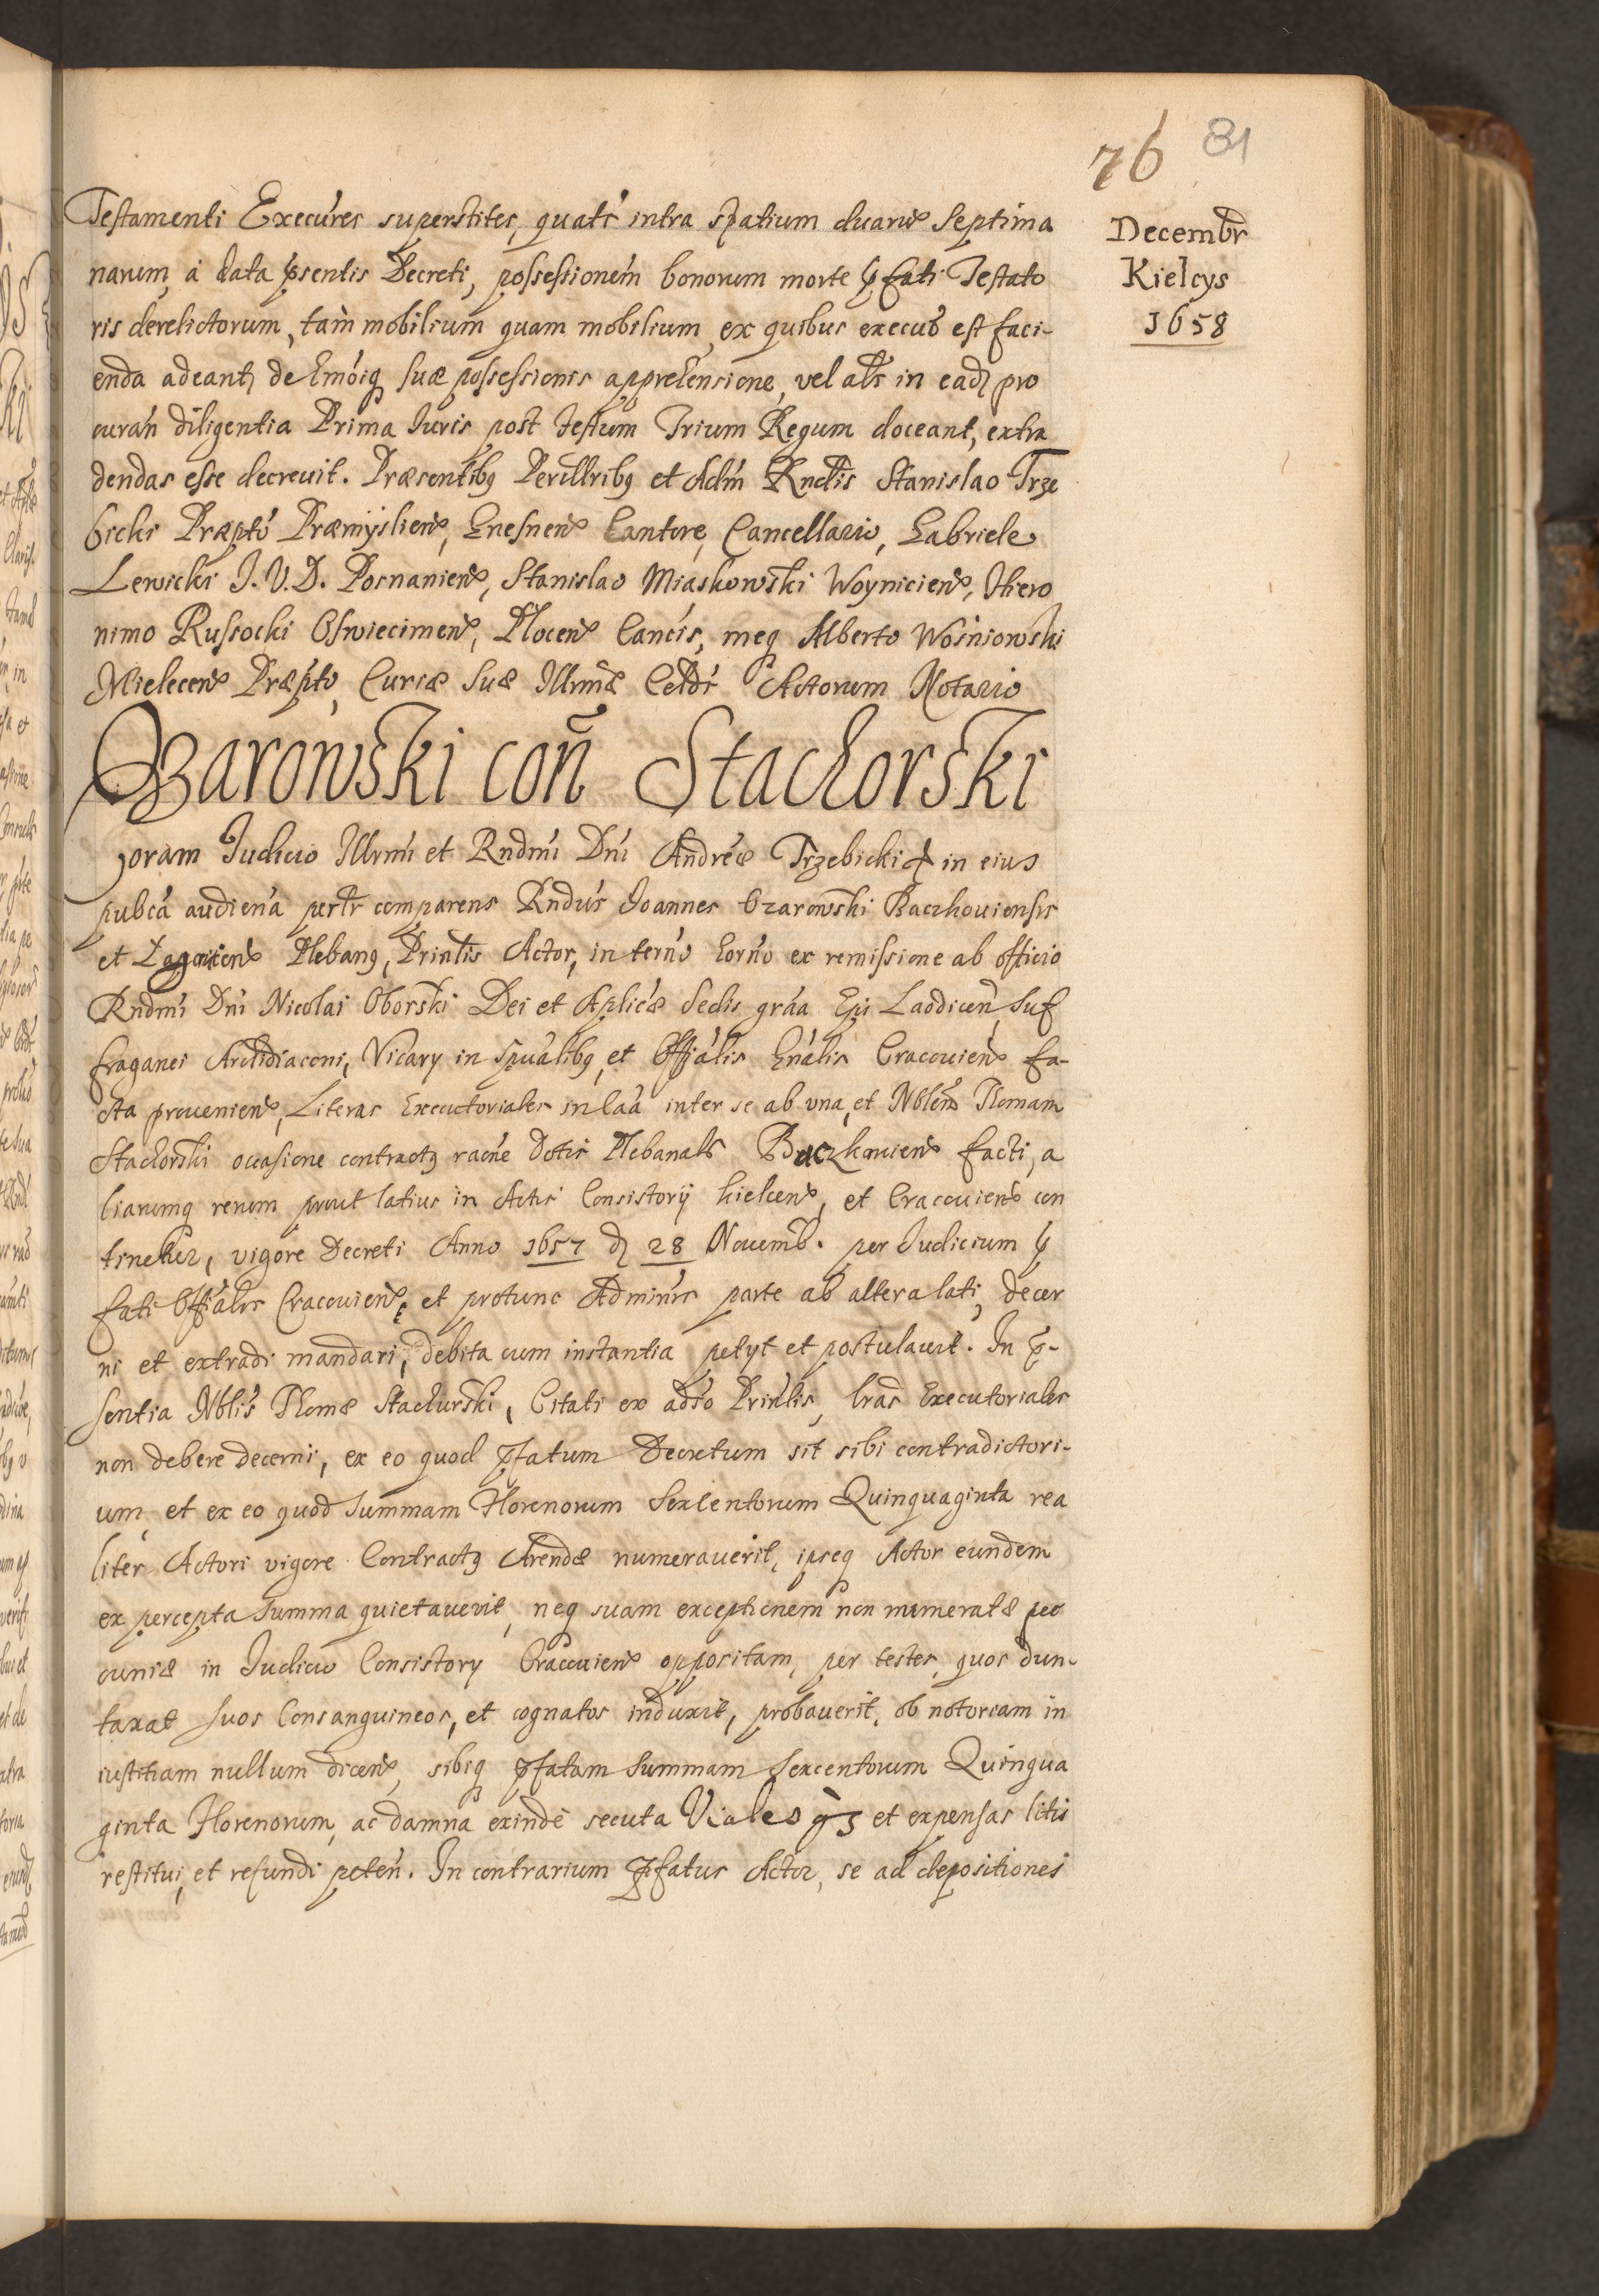 76 81
Decembr
Kielcys
1658
Testamenti Execures superstites, quats intra spatium duarum Septima
narum, a data psentis Decreti, possessionem bonorum morte pfati Testato
ris derelictorum, tam mobilium quam mobilium, ex quibus est faci-
enda adeant, de suæ possessionis apprehensione, vel alr in ead pro
curan diligentia Prima Iuris post festum Trium Regum doceant, extra
dendas esse decrevit. Præsentibq Perillribq et Adm Rndis Stanislao Trze
bicki Præpto Præmyslien, Gnesnen Cantore, Cancellario, Gabriele
Lewicki I. V. D. Posnanien, Stanislao Miaskowski Woynicien, Hiero
nimo Russocki Oswiecimen, Plocen Cancis, meq Alberto Wosniowski
Mielecen Præpto, Curiæ Suæ Illrmæ Celdi Actorum Notario
Ozarowski con Stachorski
Coram Iudicio Illrmi et Rndmi Dni Andreæ Trzebicki & in eius
pubca audiena perlr comparens Rndus Ioannes Ozarowski Baczkouiensis
et Plebanq, Prinlis Actor, in terno horno ex remissione ab officio
Rndmi Dni Nicolai Oborski Dei et Aplicæ Sedis graa Epi Laodicen, Suf
fraganei Archidiaconi, Vicary in Spualibq, et Offialis Gnalis Cracouien fa-
cta prouenien, Literas Executoriales in caa inter se ab una, et Nblem Thomam
Stachorski occasione contractq raone Dotis Plebanals Baczkouien facti, a
liarumq rerum prout latius in Actis Consistorij Kielcen, et Cracouien con
tinetur, vigore Decreti Anno 1657 d 28 Nouemb. per Iudicium p
fati Offialis Cracouien, et protunc Adminis parte ab altera lati, decer
ni et extradi mandari, debita cum instantia petyt et postulauit. In p-
sentia Nblis Thomæ Stachurski, Citati ex adso Prinlis, lras Executoriales
non debere decerni, ex eo quod pfatum Decretum sit sibi contradictori-
um, et ex eo quod summam Florenorum Sexcentorum Quinquaginta rea
liter Actori vigore Contractq Arendæ numerauerit, ipseq Actor eundem
ex percepta summa quietauerit, neq suam exceptionem non numeratæ pec
cuniæ in Iudicio Consistory Cracouien oppositam, per testes, quos dun-
taxat suos Consanguineos, et cognatos induxit, probauerit, ob notoriam in
iustitiam nullum dicen, sibiq pfatam Summam Sexcentorum Quinqua
ginta Florenorum, ac damna exinde secuta et expensas litis
restitui, et refundi peten. In contrarium pfatus Actor, se ad depositiones